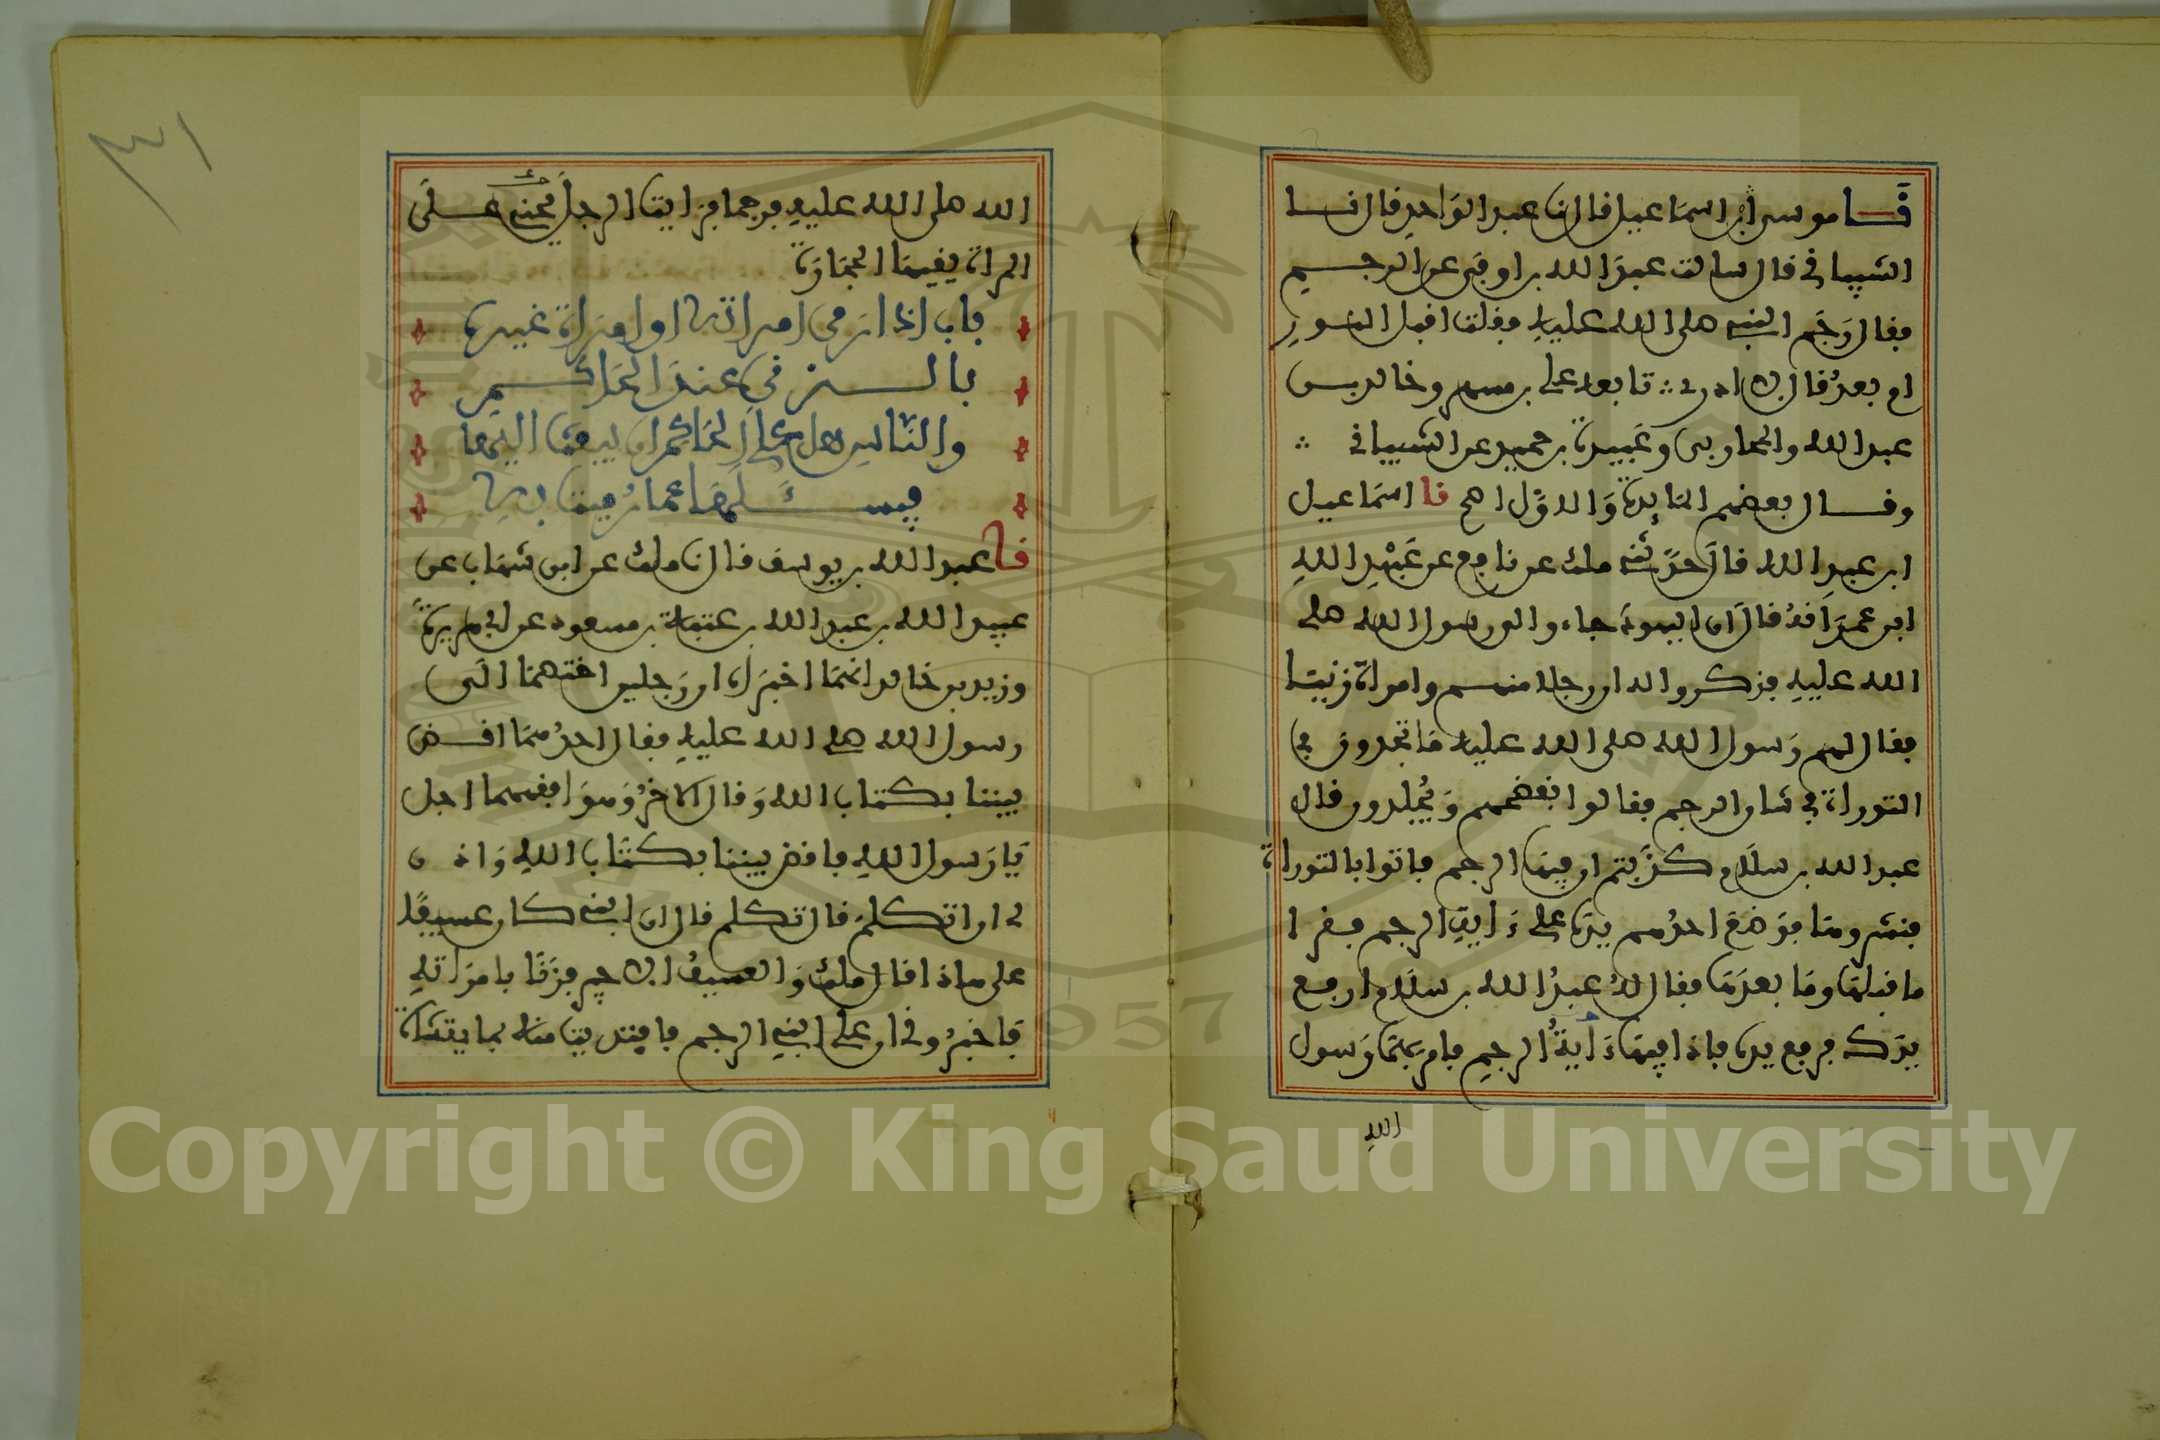 نا موسى ابن اسماعيل قال نا عبد الواحد قال نا
الشيباني قال سالت عبد الله بن اوفى عن الرجم
فقال رجم النبي صلى الله عليه فقلت اقبل النور
ام بعد قال لا ادري تابعه علي بن مسهر وخالد بن
عبد الله والمحاربي وعبيدة بن حميد عن الشيباني
وقال بعضهم المايدة والاول اصح نا اسماعيل
ابن عبد الله قال حدثني ملك عن نافع عن عبد الله
ابن عمر انه قال ان اليهود جاءوا الى رسول الله صلى
الله عليه فذكروا له ان رجلا منهم وامراة زنيا
فقال لهم رسول الله صلى الله عليه ما تجدون في
التوراة في شان الرجم فقالوا نفضحهم ويجلدون قال
عبد الله بن سلام كذبتم ان فيها الرجم فاتوا بالتوراة
فنشروها فوضع احدهم يده على ءاية الرجم فقرا
ما قبلها وما بعدها فقال له عبد الله بن سلام ارفع
يدك فرفع يده فاذا فيها ءاية الرجم فامر بهما رسول
الله
٣١
الله صلى الله عليه فرجما فرايت الرجل يحني على
المراة يقيها الحجارة
باب اذا رمى امراته او امراة غيره
بالزنى عند الحاكم
والناس هل على الحاكم ان يبعث اليها
فيسئلها عما رميت به
نا عبد الله بن يوسف قال نا ملك عن ابن شهاب عن
عبيد الله بن عبد الله بن عتبة بن مسعود عن ابي هريرة
وزيد بن خالد انهما اخبراه ان رجلين اختصما الى
رسول الله صلى الله عليه فقال احدهما اقض
بيننا بكتاب الله وقال الاخر وهو افقههما اجل
يا رسول الله فاقض بيننا بكتاب الله واذن
لي ان اتكلم قال تكلم قال ان ابني كان عسيفا
على هاذا قال ملك والعسيف الاجير فزنا بامراته
فاخبروني ان على ابني الرجم فافتديت منه بمائة شاة
Copyright © King Saud University
1957